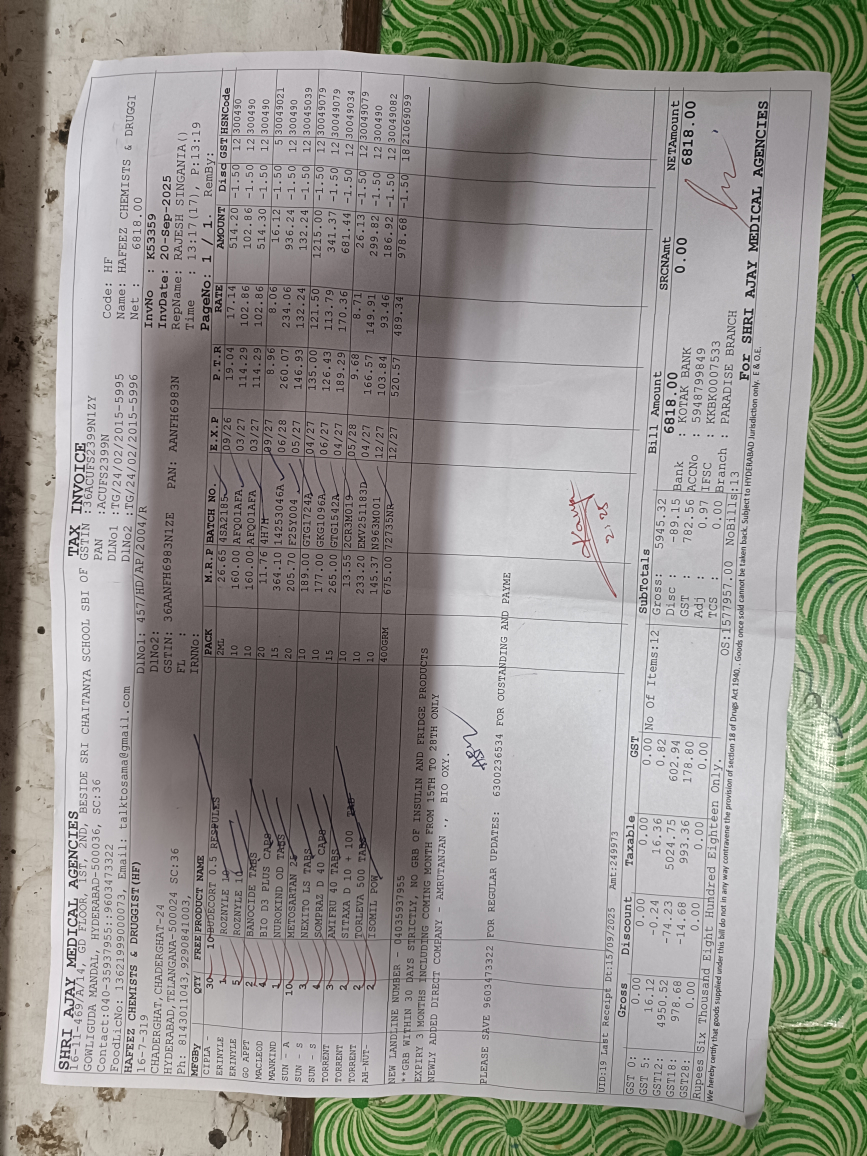 SHRI AJAY MEDICAL AGENCIES TAX INVOICE
16-11-469/A/14, GD FLOOR, 1ST, 2ND, BESIDE SRI CHAITANYA SCHOOL SBI OF GSTIN :36ACUFS2399N1ZY
GOWLIGUDA MANDAL, HYDERABAD-500036, SC:36 PAN :ACUFS2399N Code: HF
Contact:040-35937955::9603473322 DLNo1 :TG/24/02/2015-5995 Name: HAFEEZ CHEMISTS & DRUGGI
FoodLicNo: 13621999000073, Email: talktosama@gmail.com DLNo2 :TG/24/02/2015-5996 Net : 6818.00
HAFEEZ CHEMISTS & DRUGGIST(HF) DlNo1: 457/HD/AP/2004/R InvNo : K53359
16-7-319 DlNo2: InvDate: 20-Sep-2025
CHADERGHAT,CHADERGHAT-24 GSTIN: 36AANFH6983N1ZE PAN: AANFH6983N RepName: RAJESH SINGANIA()
HYDERABAD,TELANGANA-500024 SC:36 FL : Time : 13:17(17), P:13:19
Ph: 8143011043,9290841003, IRNNo: PageNo: 1 / 1. RemBy:
MFGBY QTY FREE PRODUCT NAME PACK M.R.P BATCH NO. E.X.P P.T.R RATE AMOUNT Disc GST HSNCode
CIPLA 30 10 BUDECORT 0.5 RESPULES 2ML 26.65 4SA2185 09/26 19.04 17.14 514.20 -1.50 12 300490
ERINYLE 1 ROZNYLE 10 10 160.00 AFQ01AFA 03/27 114.29 102.86 102.86 -1.50 12 300490
ERINYLE 5 ROZNYLE 10 10 160.00 AFQ01AFA 03/27 114.29 102.86 514.30 -1.50 12 300490
GO APPT 2 BANOCIDE TABS 20 11.76 4H7H 09/27 8.96 8.06 16.12 -1.50 5 30049021
MACLEOD 4 BIO D3 PLUS CAPS 15 364.10 14253046A 06/28 260.07 234.06 936.24 -1.50 12 300490
MANKIND 1 NUROKIND OD TABS 20 205.70 E25Y004 05/27 146.93 132.24 132.24 -1.50 12 30045039
SUN - A 10 METOSARTAN 25 10 189.00 GTG1724A 04/27 135.00 121.50 1215.00 -1.50 12 30049079
SUN - S 3 NEXITO LS TABS 10 177.00 GKG1096A 06/27 126.43 113.79 341.37 -1.50 12 30049079
SUN - S 4 SOMPRAZ D 40 CAPS 15 265.00 GTG1542A 04/27 189.29 170.36 681.44 -1.50 12 30049034
TORRENT 3 AMIFRU 40 TABS 10 13.55 2CR3M019 05/28 9.68 8.71 26.13 -1.50 12 30049079
TORRENT 2 SITAXA D 10 + 100 TAB 10 233.20 EMV251183D 04/27 166.57 149.91 299.82 -1.50 12 300490
TORRENT 2 TORLEVA 500 TABS 10 145.37 N963M001 12/27 103.84 93.46 186.92 -1.50 12 30049082
AH-NUT- 2 ISOMIL POW 400GRM 675.00 72735NR 12/27 520.57 489.34 978.68 -1.50 18 21069099
NEW LANDLINE NUMBER - 04035937955
**GRB WITHIN 30 DAYS STRICTLY, NO GRB OF INSULIN AND FRIDGE PRODUCTS
EXPIRY 3 MONTHS INCLUDING COMING MONTH FROM 15TH TO 28TH ONLY
NEWLY ADDED DIRECT COMPANY - AMRUTANJAN ., BIO OXY.
PLEASE SAVE 9603473322 FOR REGULAR UPDATES: 6300236534 FOR OUSTANDING AND PAYME
UID:19 Last Receipt Dt:15/09/2025 Amt:249973
Gross Discount Taxable GST SubTotals Bill Amount SRCNAmt NETAmount
GST 0: 0.00 0.00 0.00 0.00 No Of Items:12 Gross: 5945.32 6818.00 0.00 6818.00
GST 5: 16.12 -0.24 16.36 0.82 Disc : -89.15 Bank : KOTAK BANK
GST12: 4950.52 -74.23 5024.75 602.94 GST : 782.56 ACCNo : 5948799849
GST18: 978.68 -14.68 993.36 178.80 Adj : 0.97 IFSC : KKBK0007533
GST28: 0.00 0.00 0.00 0.00 TCS : 0.00 Branch : PARADISE BRANCH
Rupees Six Thousand Eight Hundred Eighteen Only. OS:1577957.00 NoBills:13 For SHRI AJAY MEDICAL AGENCIES
We hereby certify that goods supplied under this bill do not in any way contravene the provision of section 18 of Drugs Act 1940. . Goods once sold cannot be taken back. Subject to HYDERABAD Jurisdiction only. E & O.E.